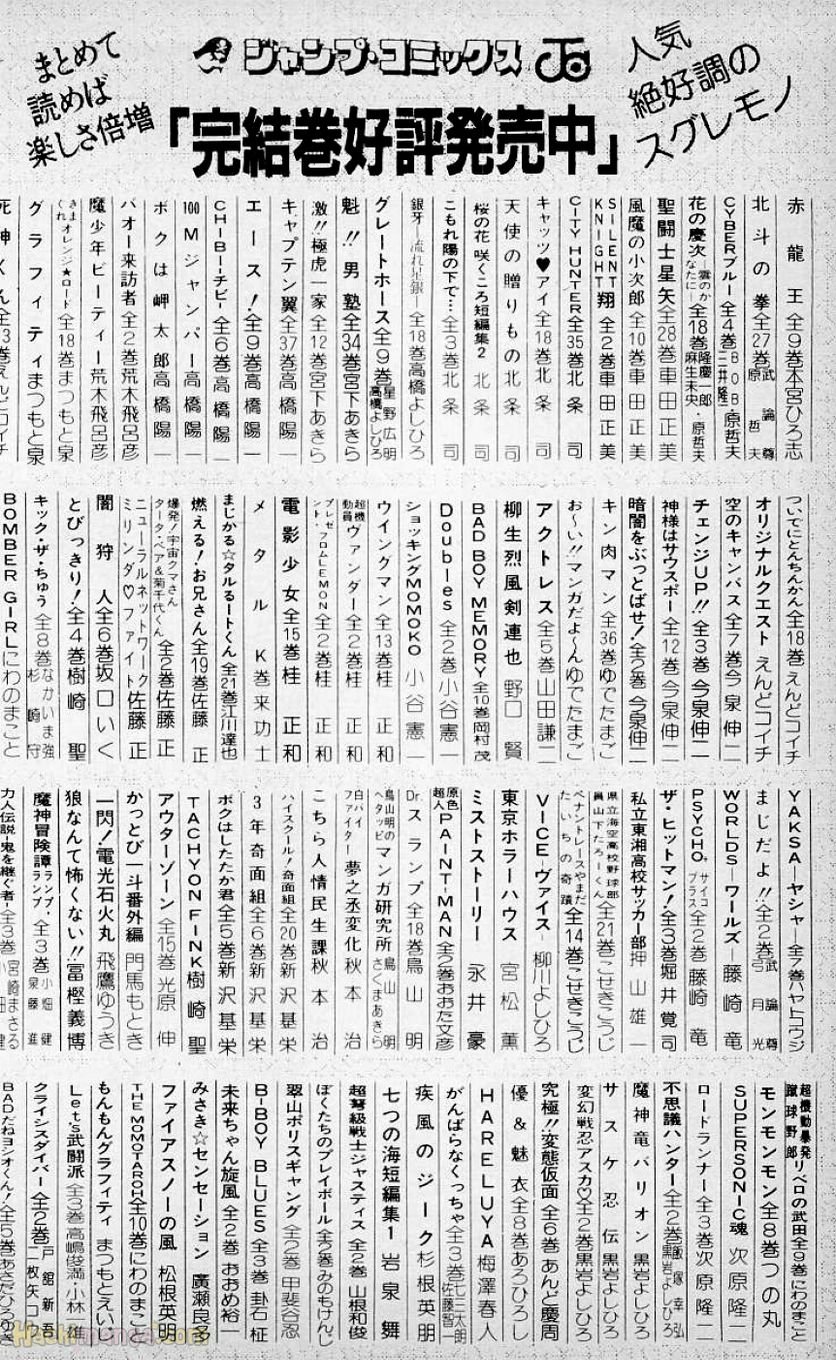 まとめて
読めば
楽しさ倍増
ジャンプ・コミックス
人気
絶好調の
スグレモノ
「完結巻好評発売中」
赤龍王 全9巻 本宮ひろ志
北斗の拳 全27巻 武論尊 原哲夫
CYBERブルー 全4巻 BOB 三井隆一 原哲夫
花の慶次―雲のかなたに― 全18巻 隆慶一郎 麻生未央・原哲夫
聖闘士星矢 全28巻 車田正美
風魔の小次郎 全10巻 車田正美
SILENT KNIGHT翔 全2巻 車田正美
CITY HUNTER 全35巻 北条司
キャッツ♥アイ 全18巻 北条司
天使の贈りもの 北条司
桜の花咲くころ 短編集2 北条司
こもれ陽の下で… 全3巻 北条司
銀牙―流れ星 銀― 全18巻 高橋よしひろ
グレートホース 全9巻 星野広明 高橋よしひろ
魁!!男塾 全34巻 宮下あきら
激!!極虎一家 全12巻 宮下あきら
キャプテン翼 全37巻 高橋陽一
エース! 全9巻 高橋陽一
CHIBI―チビ― 全6巻 高橋陽一
100Mジャンパー 高橋陽一
ボクは岬太郎 高橋陽一
バオー来訪者 全2巻 荒木飛呂彦
魔少年ビーティー 荒木飛呂彦
きまぐれオレンジ★ロード 全18巻 まつもと泉
グラフィティ まつもと泉
死神くん 全13巻 えんどコイチ
ついでにとんちんかん 全18巻 えんどコイチ
オリジナルクエスト えんどコイチ
空のキャンバス 全7巻 今泉伸二
チェンジUP!! 全3巻 今泉伸二
神様はサウスポー 全12巻 今泉伸二
暗闇をぶっとばせ! 全2巻 今泉伸二
キン肉マン 全36巻 ゆでたまご
お〜い!!マンガだよ〜ん ゆでたまご
アクトレス 全5巻 山田謙二
柳生烈風剣連也 野口賢
BAD BOY MEMORY 全10巻 岡村茂
Doubles 全2巻 小谷憲一
ショッキングMOMOKO 小谷憲一
ウイングマン 全13巻 桂正和
超機動員ヴァンダー 全2巻 桂正和
プレゼント・フロムLEMON 全2巻 桂正和
電影少女 全15巻 桂正和
メタルK 巻来功士
まじかる☆タルるートくん 全21巻 江川達也
燃える!お兄さん 全19巻 佐藤正
爆発!宇宙クマさん タータ・ベア&菊千代くん 全2巻 佐藤正
ニューラルネットワーク ミリンダ♡ファイト 佐藤正
闇狩人 全6巻 坂口いく
とびっきり! 全4巻 樹崎聖
キック・ザ・ちゅう 全8巻 なかいま強 杉崎守
BOMBER GIRL にわのまこと
YAKSA―ヤシャ― 全7巻 ハヤトコウジ
まじだよ!! 全2巻 武論尊 弓月光
WORLDS―ワールズ― 藤崎竜
PSYCHO+ サイコプラス 全2巻 藤崎竜
ザ・ヒットマン! 全3巻 堀井覚司
私立東湘高校サッカー部 押山雄一
県立海空高校野球部員山下たろーくん 全21巻 こせきこうじ
ペナントレースやまだたいちの奇蹟 全14巻 こせきこうじ
VICE―ヴァイス― 柳川よしひろ
東京ホラーハウス 宮松薫
ミストストーリー 永井豪
原色超人PAINT-MAN 全2巻 おおた文彦
Dr.スランプ 全18巻 鳥山明
鳥山明のヘタッピマンガ研究所 鳥山明 さくまあきら
白バイファイター 夢之丞変化 秋本治
こちら人情民生課 秋本治
ハイスクール!奇面組 全20巻 新沢基栄
3年奇面組 全6巻 新沢基栄
ボクはしたたか君 全5巻 新沢基栄
TACHYON FINK 樹崎聖
アウターゾーン 全15巻 光原伸
かっとび一斗番外編 門馬もとき
一閃!電光石火丸 飛鷹ゆうき
狼なんて怖くない!! 冨樫義博
魔神冒険譚ランプ・ランプ 全3巻 小畑健 泉藤進
力人伝説―鬼を継ぐ者― 全3巻 宮崎まさる 小畑健
超機動暴発蹴球野郎 リベロの武田 全9巻 にわのまこと
モンモンモン 全8巻 つの丸
SUPERSONIC魂 次原隆二
ロードランナー 全3巻 次原隆二
不思議ハンター 全2巻 飯塚幸弘 黒岩よしひろ
魔神竜バリオン 黒岩よしひろ
サスケ忍伝 黒岩よしひろ
変幻戦忍アスカ♡ 全2巻 黒岩よしひろ
究極!!変態仮面 全6巻 あんど慶周
優&魅衣 全8巻 あろひろし
HARELUYA 梅澤春人
がんばらなくっちゃ 全3巻 七三太朗 佐藤智一
疾風のジーク 杉根英朋
七つの海 短編集1 岩泉舞
超弩級戦士ジャスティス 全2巻 山根和俊
ぼくたちのプレイボール 全2巻 みのもけんじ
翠山ポリスギャング 全2巻 甲斐谷忍
B-BOY BLUES 全3巻 卦石柾
未来ちゃん旋風 全2巻 おおめ裕一
みさき☆センセーション 廣瀬良多
ファイアスノーの風 松根英明
THE MOMOTAROH 全10巻 にわのまこと
もんもんグラフィティ まつもとえいじ
Let's武闘派 全3巻 高嶋俊満 小林雄
クライシスダイバー 全2巻 戸館新吾 二枚矢コウ
BADだねヨシオくん! 全5巻 あさだひろゆき